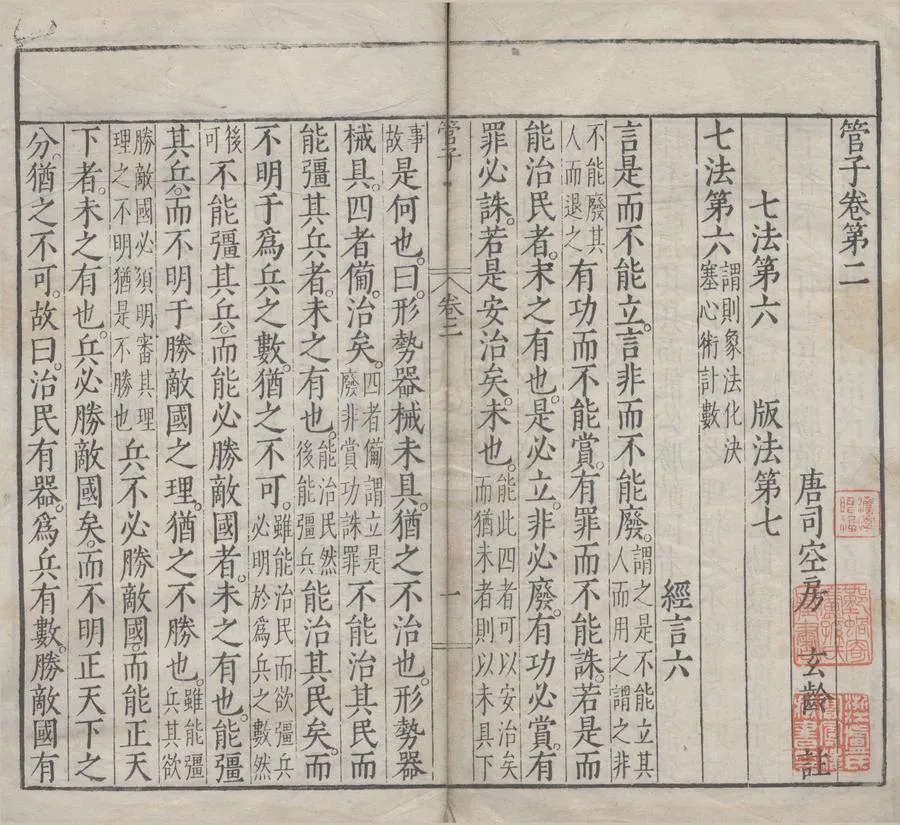 管子卷第二
唐司空房 玄齡 註
七法第六 版法第七
七法第六 謂則象法化決塞心術計數
經言六
言是而不能立。言非而不能廢。謂之是不能立其人而用之謂之非
不能廢其人而退之有功而不能賞。有罪而不能誅。若是而
能治民者。未之有也。是必立。非必廢。有功必賞。有
罪必誅。若是安治矣。未也。能此四者可以安治矣而猶未者則以未具下
管子 卷二 一
事故是何也。曰。形勢器械未具。猶之不治也。形勢器
械具。四者備。治矣。四者備謂立是廢非賞功誅罪不能治其民而
能彊其兵者。未之有也。能治民然後能彊兵能治其民矣。而
不明于爲兵之數。猶之不可。雖能治民而欲彊兵必明於爲兵之數然
後可不能彊其兵。而能必勝敵國者。未之有也。能彊
其兵。而不明于勝敵國之理。猶之不勝也。雖能彊兵其欲
勝敵國必須明審其理理之不明猶是不勝也兵不必勝敵國。而能正天
下者。未之有也。兵必勝敵國矣。而不明正天下之
分。猶之不可。故曰。治民有器。爲兵有數。勝敵國有